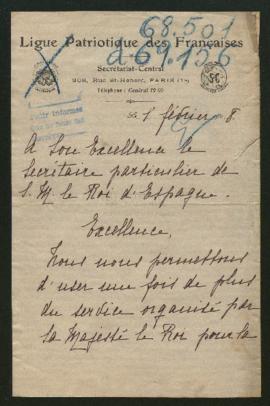 68.501
d 69.156
Ligue Patriotique des Françaises
Secrétariat-Central
368, Rue St-Honoré, PARIS (1er)
Téléphone : Central
1 février 8.
Pedir informes
A Son Excellence le
Secrétaire particulier de
S. M. le Roi d'Espagne.
Excellence,
Nous nous permettons
d'user une fois de plus
du service organisé par
Sa Majesté le Roi pour la